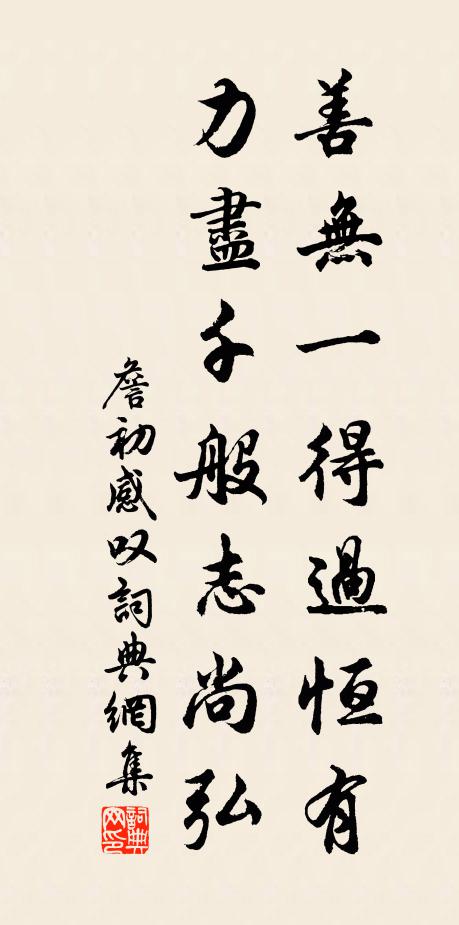 善無一得過恒有
力盡千般志尚弘
詹初感叹詞典網集
詞典網印